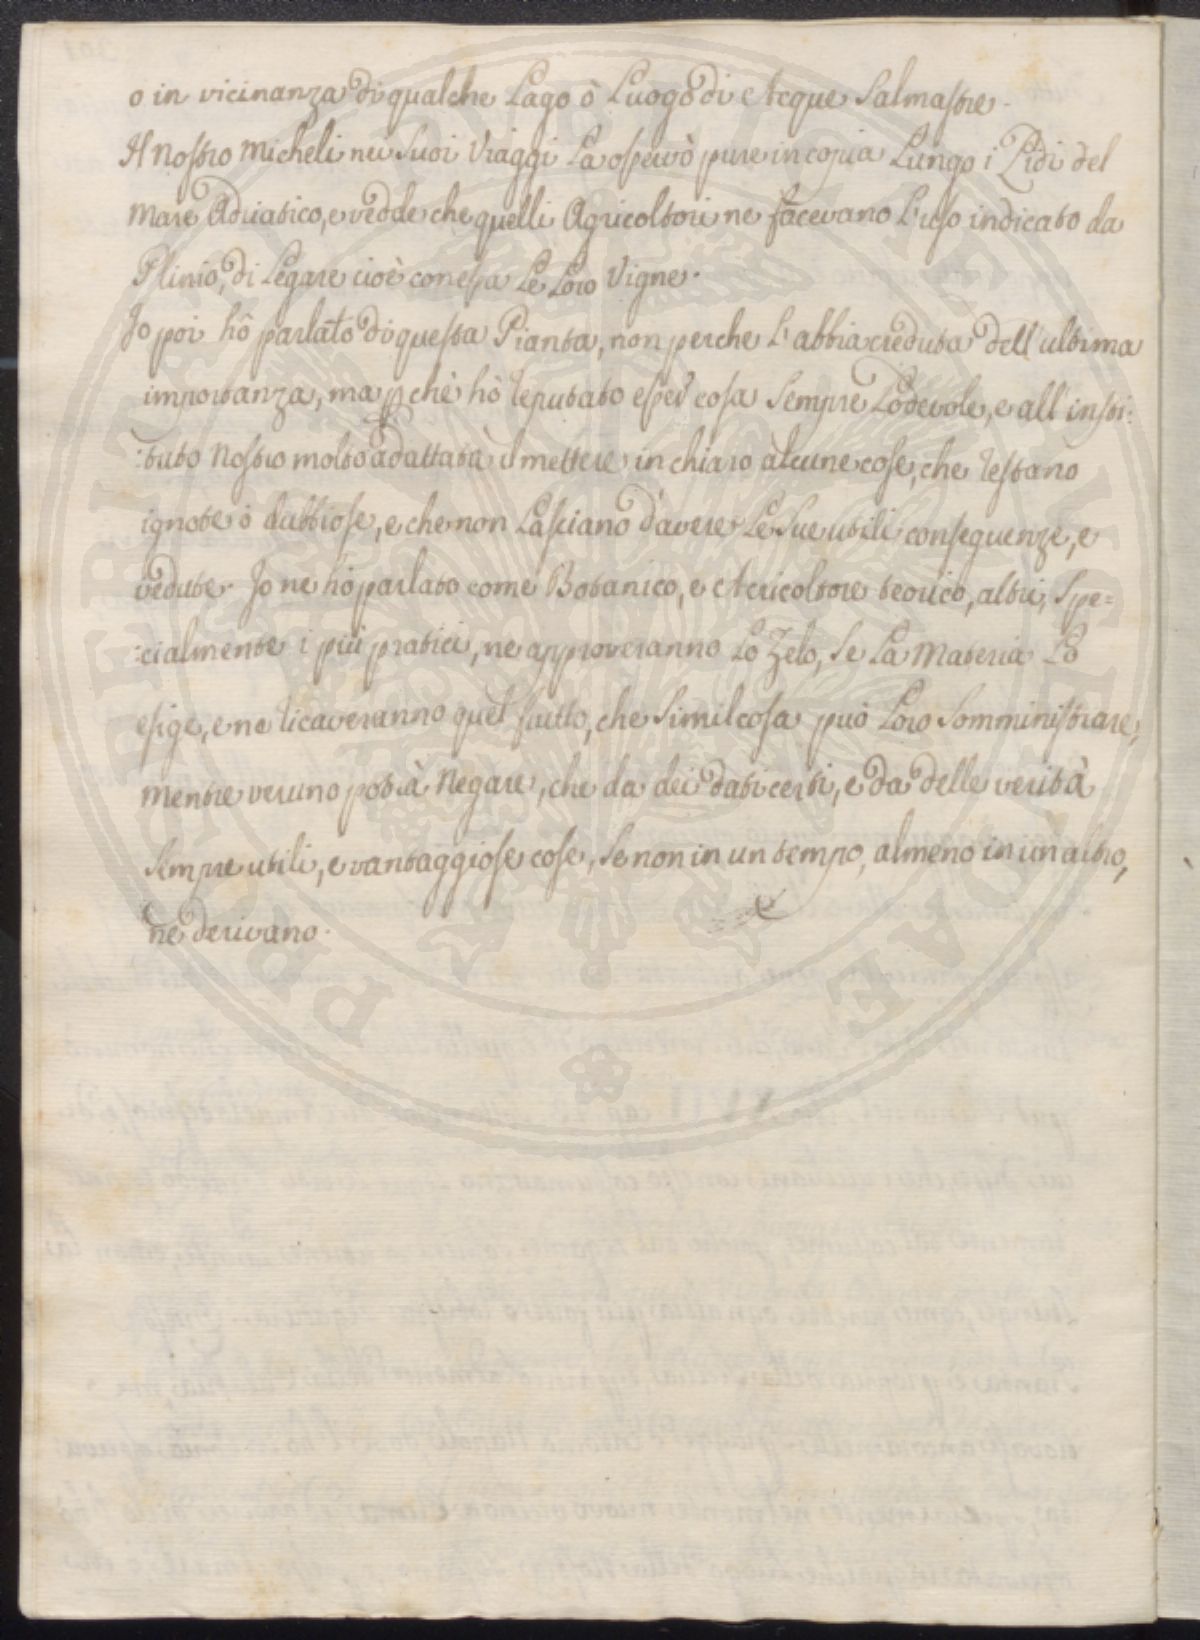 o in vicinanza di qualche Lago ò Luogo di Acque Salmastre.
Il Nostro Micheli nei Suoi Viaggi La osservò pure in copia Lungo i Lidi del
Mare Adriatico, e vedde che quelli Agricoltori ne facevano L'uso indicato da
Plinio, di Legare cioè con essa Le Loro Vigne.
Io poi hò parlato di questa Pianta, non perche L'abbia creduta dell'ultima
importanza, ma pchè hò reputato esser cosa Sempre Lodevole, e all'insti:
:tuto Nostro molto adattata il mettere in chiaro alcune cose, che restano
ignote ò dubbiose, e che non Lasciano d'avere Le Sue utili conseguenze, e
vedute. Io ne hò parlato come Botanico, e Agricoltore teorico, altri, Spe=
:cialmente i più pratici, ne approveranno Lo Zelo, Se La Materia Lo
esige, e ne ricaveranno quel frutto, che Simil cosa può Loro Somministrare,
mentre veruno potrà Negare, che da dei dati certi, e da delle verità
Sempre utili, e vantaggiose cose, Se non in un tempo, almeno in un altro,
ne derivano.